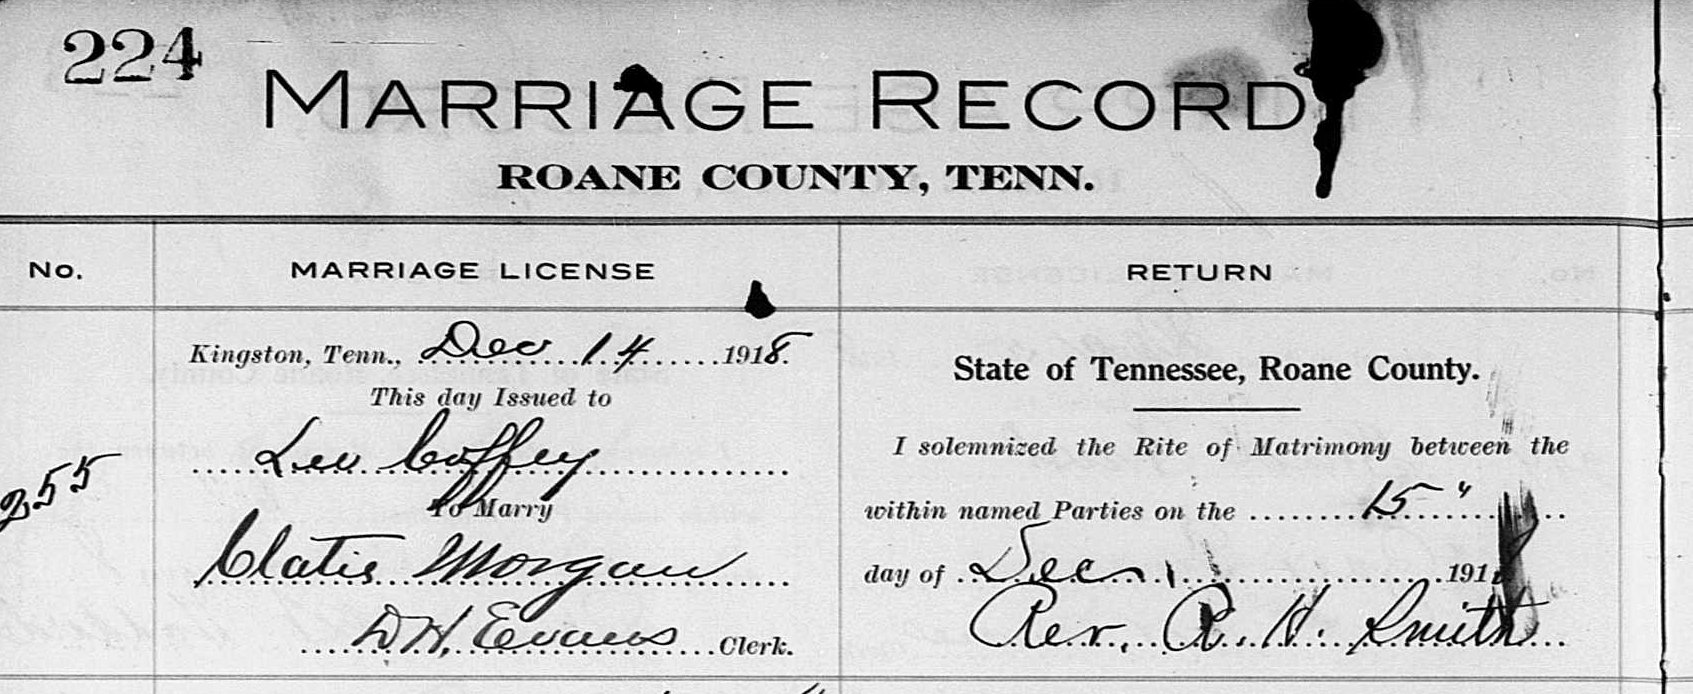 224
MARRIAGE RECORD
ROANE COUNTY, TENN.
No.
MARRIAGE LICENSE
RETURN
255
Kingston, Tenn., Dec 14 1918.
This day Issued to
Leo Coffey
To Marry
Clatis Morgan
D H, Evans Clerk.
State of Tennessee, Roane County.
I solemnized the Rite of Matrimony between the
within named Parties on the 15"
day of Dec. 191
Rev. R. H. Smith